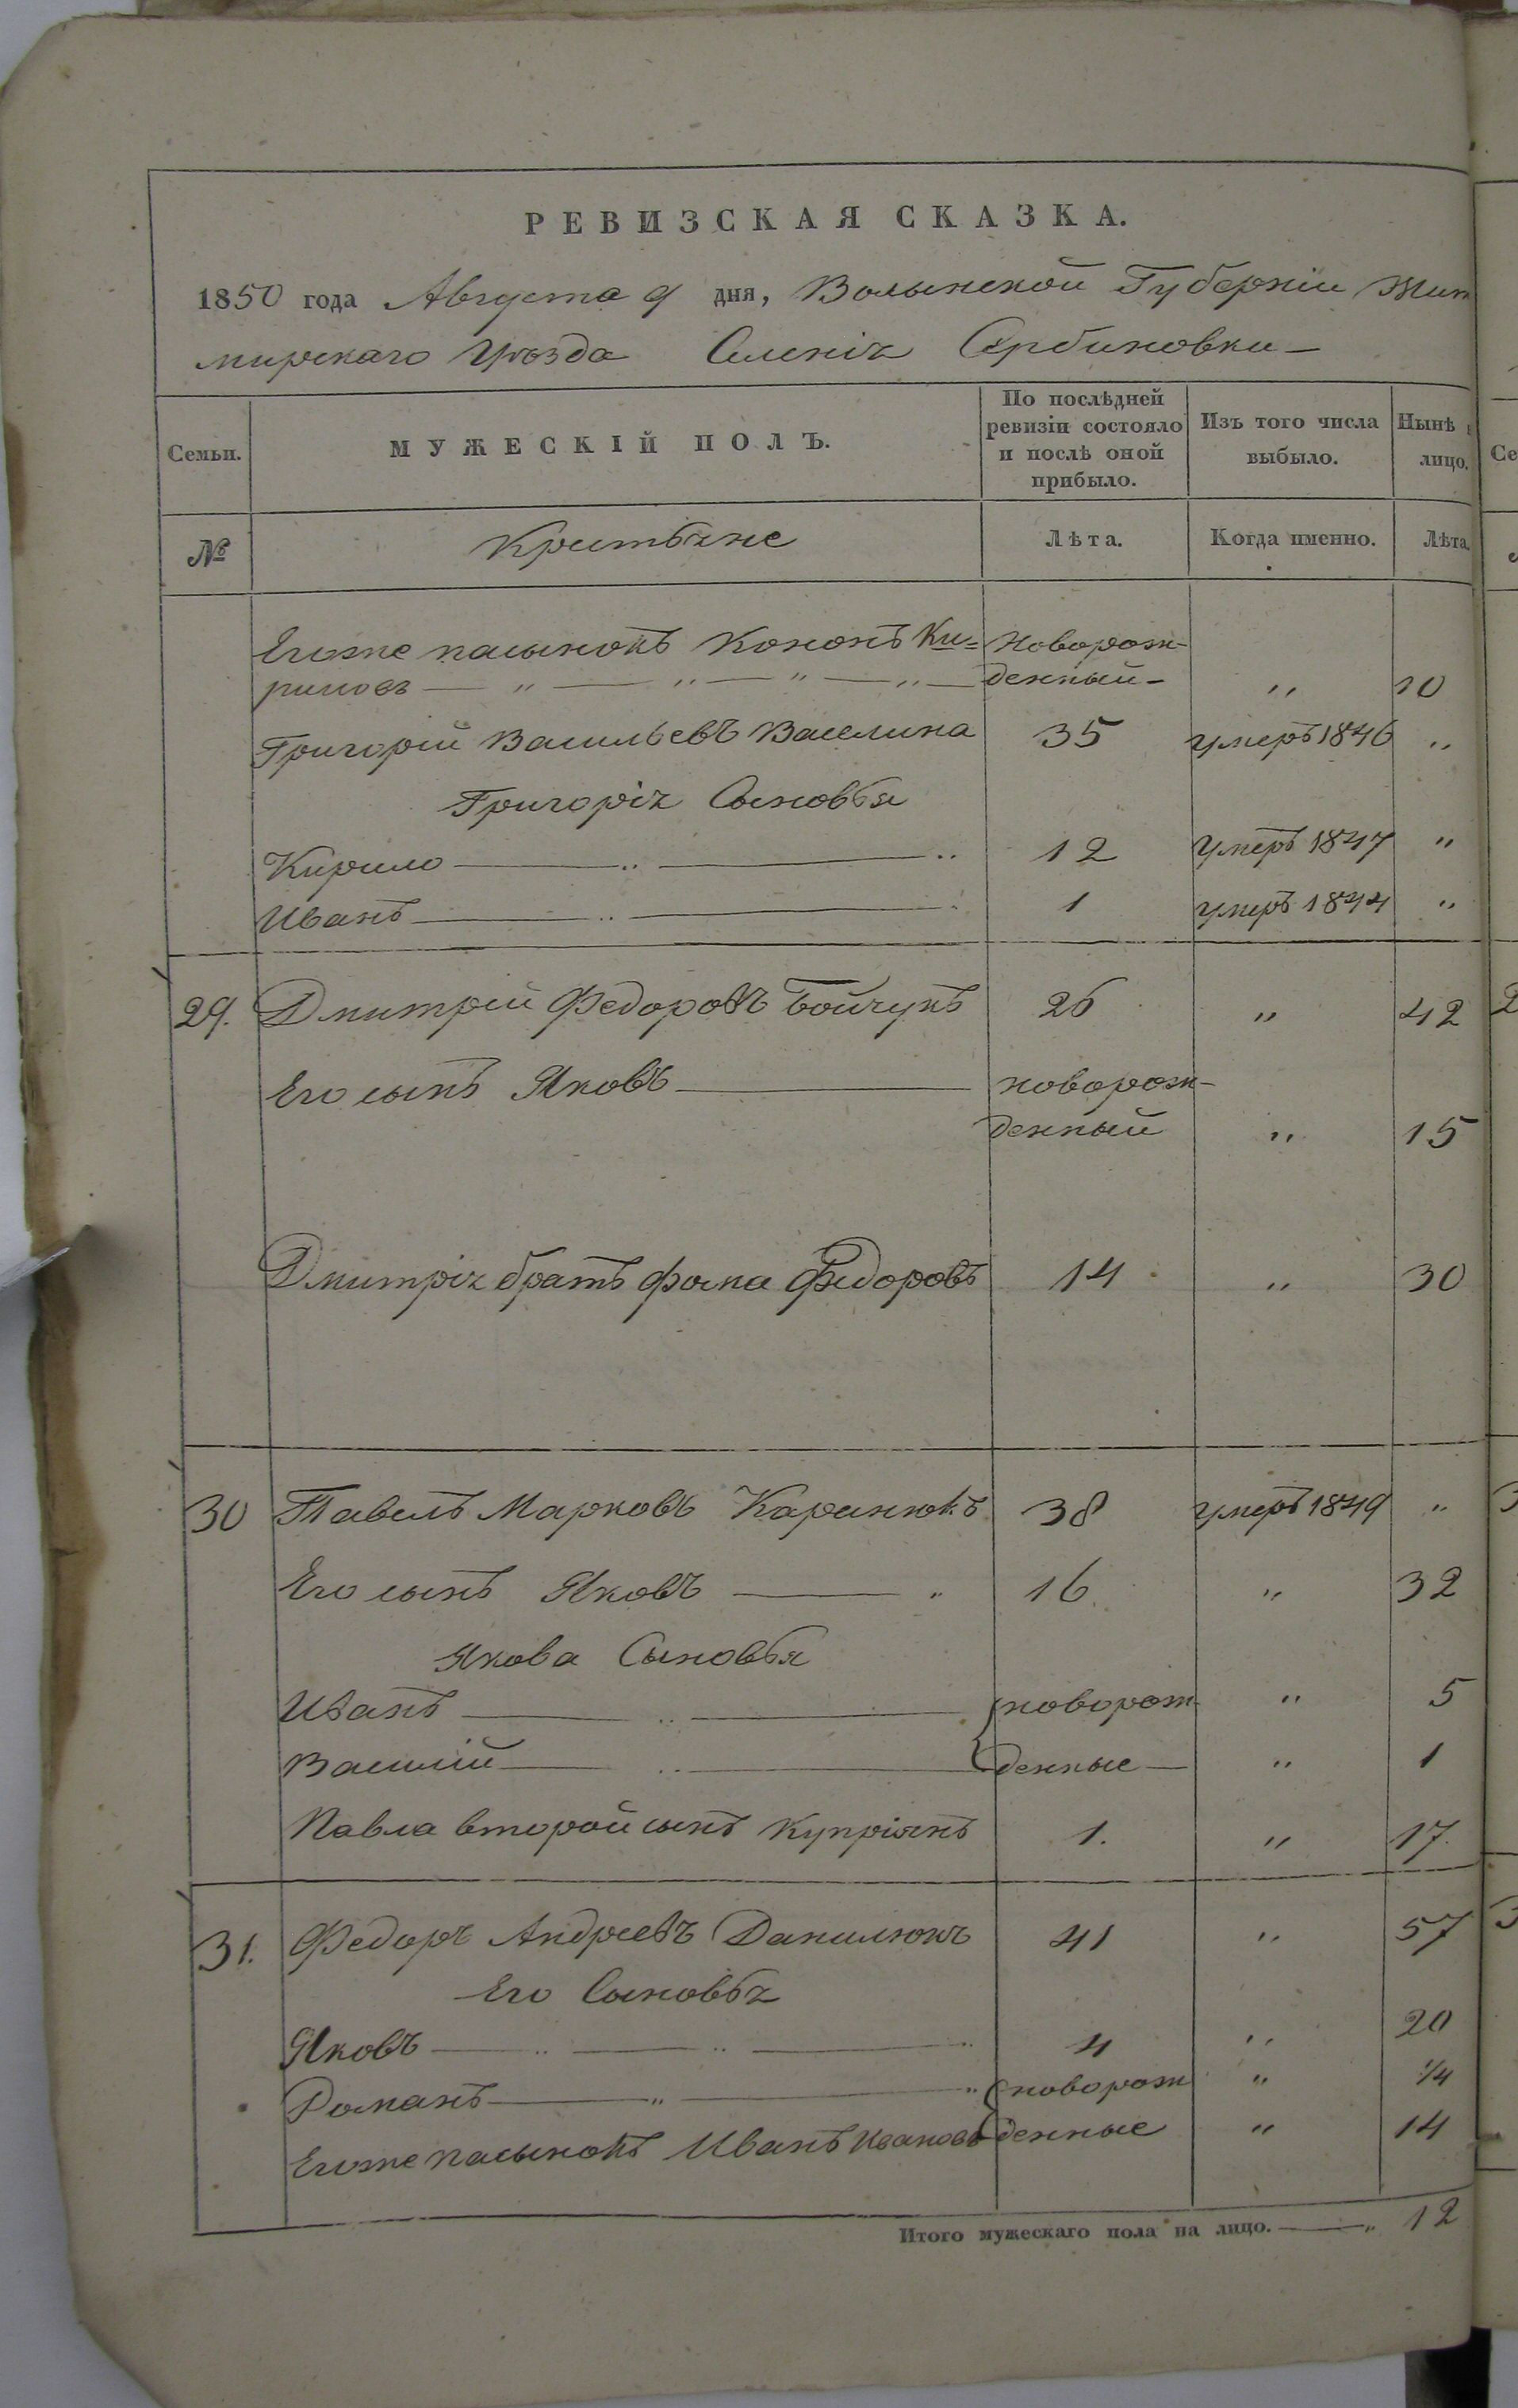 РЕВИЗСКАЯ СКАЗКА.
1850 года Августа 9 дня, Волынской Губернiи Жит
мирскаго Уѣзда Селенiя Сербиновки
Семьи. МУЖЕСКІЙ ПОЛЪ. По послѣдней ревизіи состояло и послѣ оной прибыло. Изъ того числа выбыло. Нынѣ лицо.
№ Крестьяне Лѣта. Когда именно. Лѣта.
Егоже пасынокъ Кононъ Ки= Новорож-
риловъ — " — " — " — " — денный - " 10
Григорій Васильевъ Васелина 35 умеръ 1846 "
Григорія Сыновья
Кирило — " — " 12 Умеръ 1847 "
Иванъ — " — " 1 умеръ 1844 "
29. Дмитрій Федоровъ Бойчукъ 26 " 42
Его сынъ Яковъ — новорож-
денный " 15
Дмитрія братъ Фома Федоровъ 14 " 30
30 Павелъ Марковъ 38 умеръ 1849 "
Его сынъ Яковъ — " 16 " 32
Якова Сыновья
Иванъ — " — новорож- " 5
Василій — " — денные — " 1
Павла второй сынъ Купріянъ 1. " 17.
31. Федоръ Андреевъ Данилюкъ 41 " 57
Его Сыновья
Яковъ — " — " — " 4 " 20
Романъ — " — " новорож " 1/4
Егоже пасынокъ Иванъ Ивановъ денные " 14
Итого мужескаго пола на лицо. — " 12